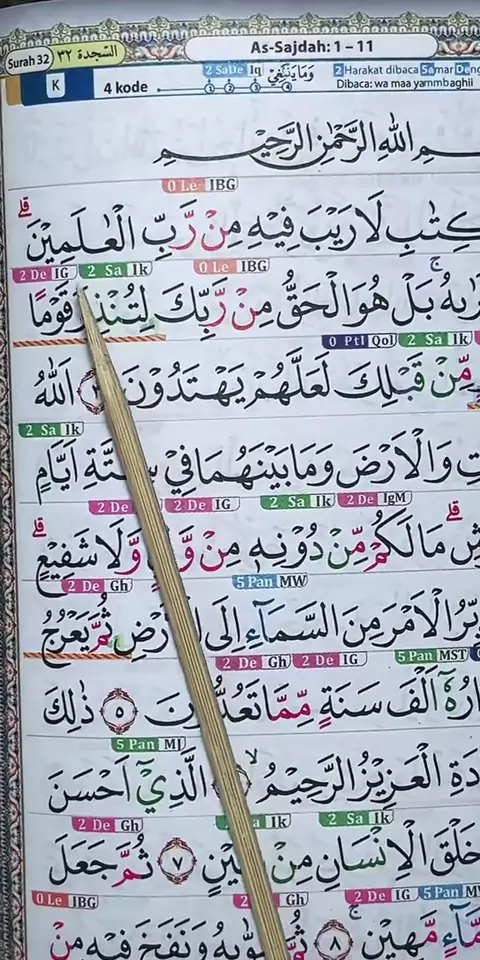 Surah 32 السَّجْدَة ٣٢ As-Sajdah: 1 – 11
K 4 kode 2 Sabe Iq وَمَا يَنْۢبَغِيْ 2 Harakat dibaca Samar Deng
1 2 3 4 Dibaca: wa maa yammbaghii
اللّٰهِ الرَّحْمٰنِ الرَّحِيْمِ
0 Le IBG
لَا رَيْبَ فِيْهِ مِنْ رَّبِّ الْعٰلَمِيْنَ ۗ
2 De IG 2 Sa Ik 0 Le IBG
بَلْ هُوَ الْحَقُّ مِنْ رَّبِّكَ لِتُنْذِرَ قَوْمًا
0 Ptl Qol 2 Sa Ik
مِّنْ قَبْلِكَ لَعَلَّهُمْ يَهْتَدُوْنَ اَللّٰهُ
2 Sa Ik
وَالْاَرْضَ وَمَا بَيْنَهُمَا فِيْ سِتَّةِ اَيَّامٍ
2 De 2 De IG 2 Sa Ik 2 De IgM
مَا لَكُمْ مِّنْ دُوْنِهٖ مِنْ وَّلَا شَفِيْعٍ ۗ
2 De Gh 5 Pan MW
الْاَمْرَ مِنَ السَّمَاۤءِ اِلَى ثُمَّ يَعْرُجُ
2 De Gh 2 De IG 5 Pan MST
اَلْفَ سَنَةٍ مِّمَّا تَعُدُّوْنَ ٥ ذٰلِكَ
5 Pan MJ
الْعَزِيْزُ الرَّحِيْمُ ۙ الَّذِيْٓ اَحْسَنَ
2 De Gh Ik 2 Sa Ik
خَلْقَ الْاِنْسَانِ مِنْ ٧ ثُمَّ جَعَلَ
0 Le IBG Gh 2 De IG 5 Pan
مَّاۤءٍ مَّهِيْنٍ ۚ ٨ وَنَفَخَ فِيْهِ مِنْ